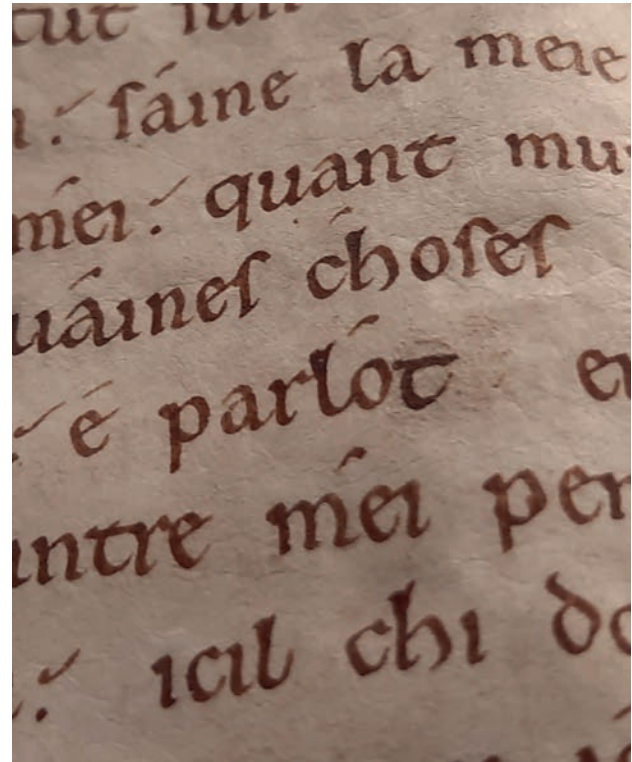 tut
: sáine la meie
méi: quant mu
uáines choses
é parlót en
untre méi per
: icil chi de